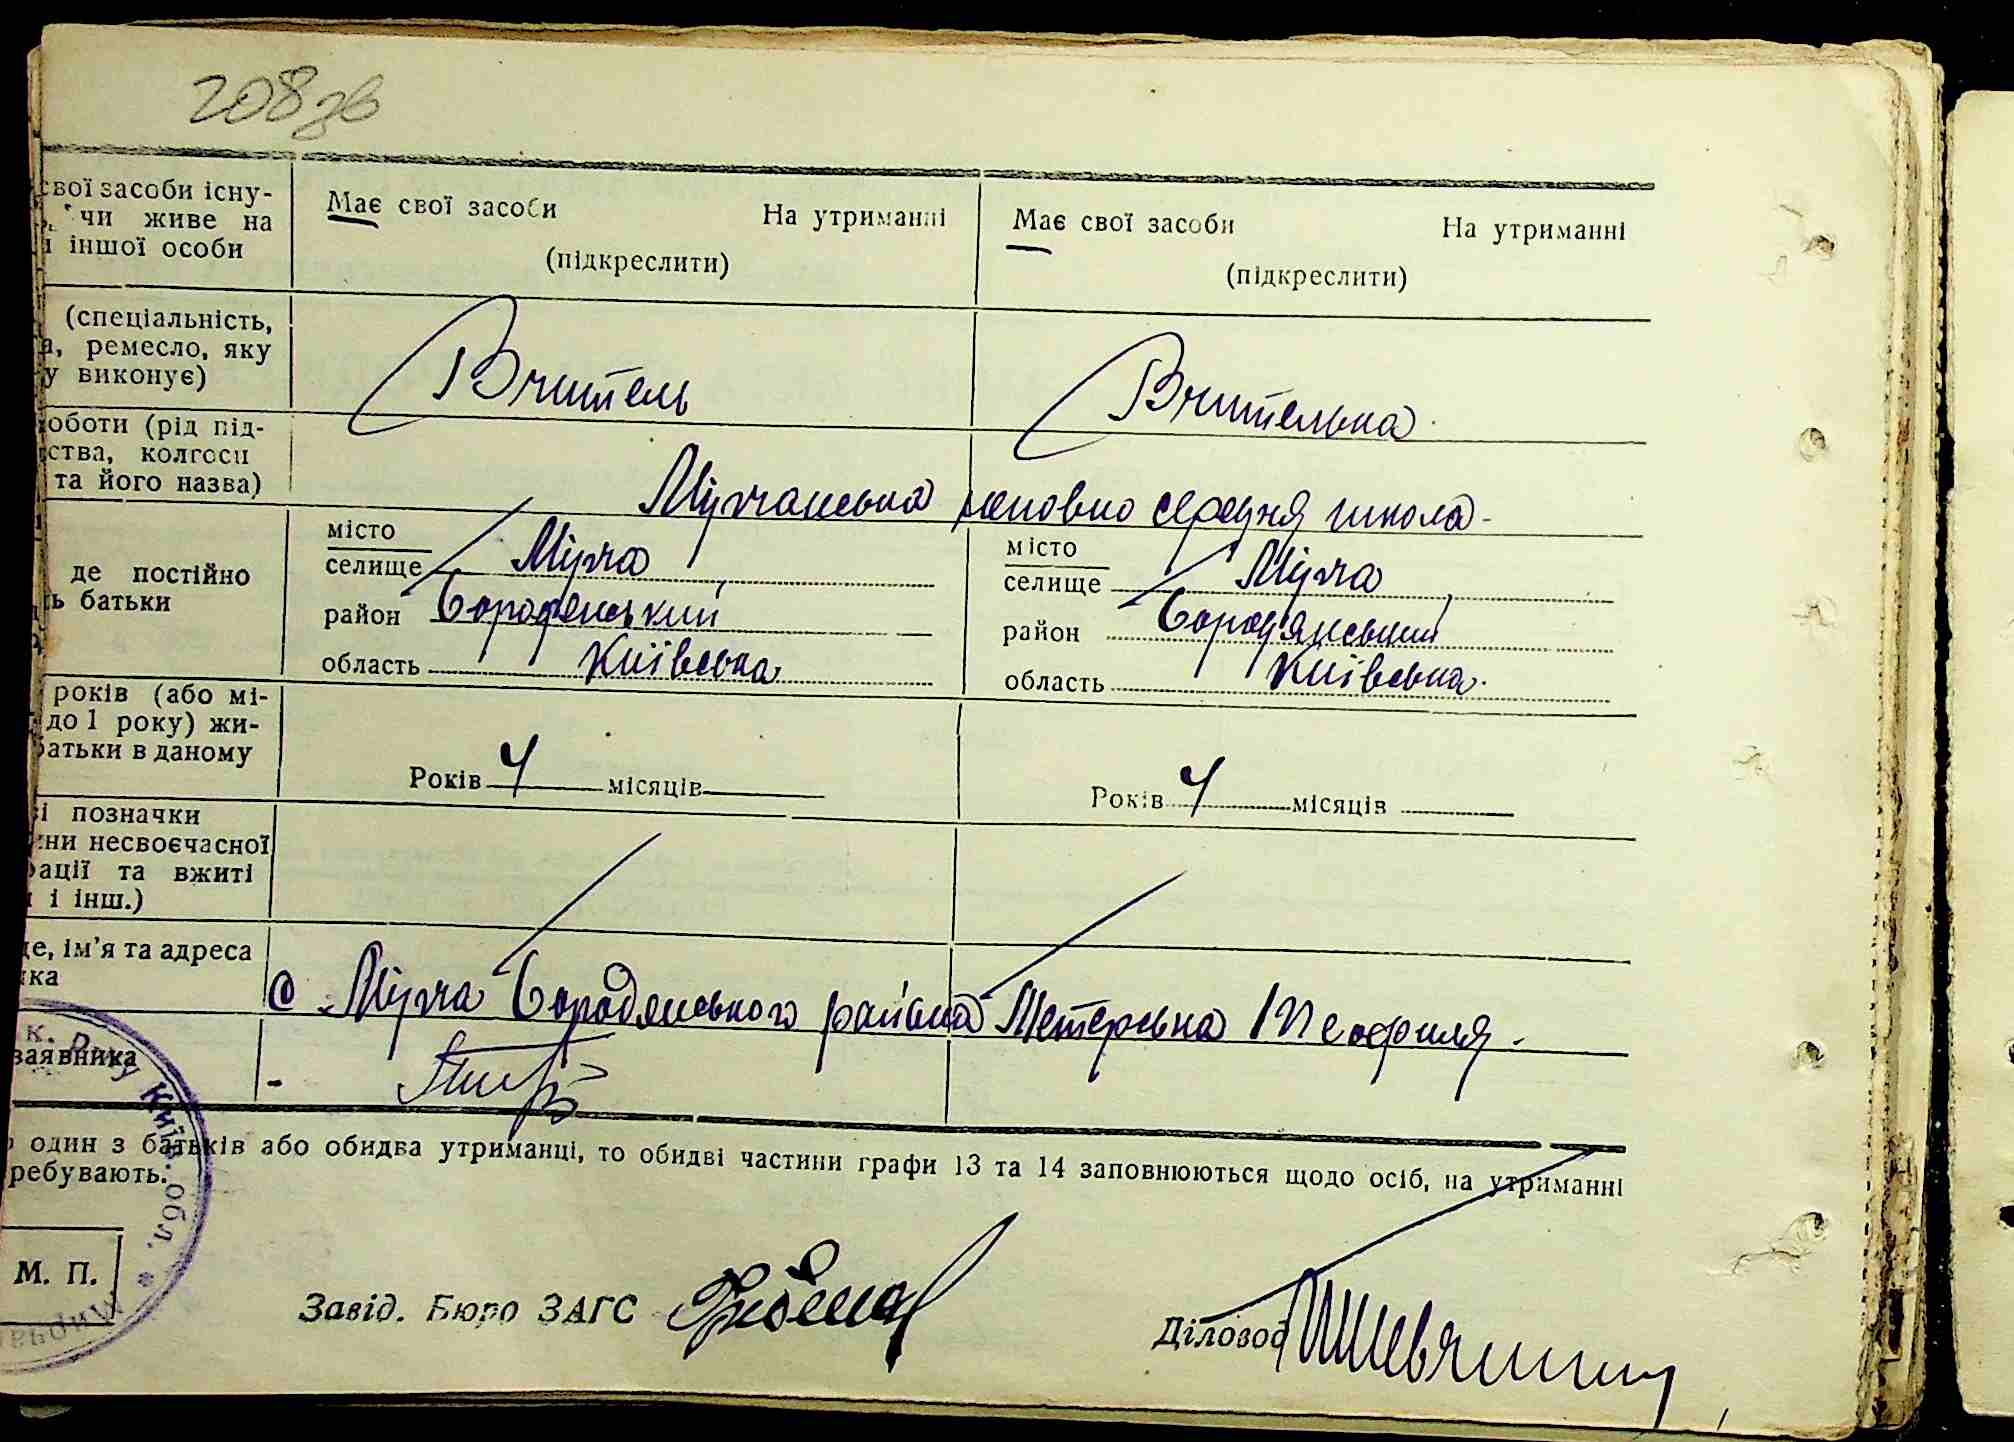 208зв
свої засоби існу-
чи живе на
іншої особи
Має свої засоби На утриманні
(підкреслити)
Має свої засоби На утриманні
(підкреслити)
(спеціальність,
ремесло, яку
виконує)
Вчитель
Вчителька
оботи (рід під-
ства, колгосп
та його назва)
Мірчанська неповно середня школа
де постійно
батьки
місто
селище Мірча
район Бородянський
область Київська
місто
селище Мірча
район Бородянський
область Київська
років (або мі-
до 1 року) жи-
батьки в даному
Років 4 місяців
Років 4 місяців
позначки
ни несвоєчасної
рації та вжиті
і інш.)
це, ім'я та адреса
ка
с Мірча Бородянського района Петерська Теофиля
заявника
один з батьків або обидва утриманці, то обидві частини графи 13 та 14 заповнюються щодо осіб, на утриманні
ребувають.
М. П.
Київ. обл.
Завід. Бюро ЗАГС
Діловод